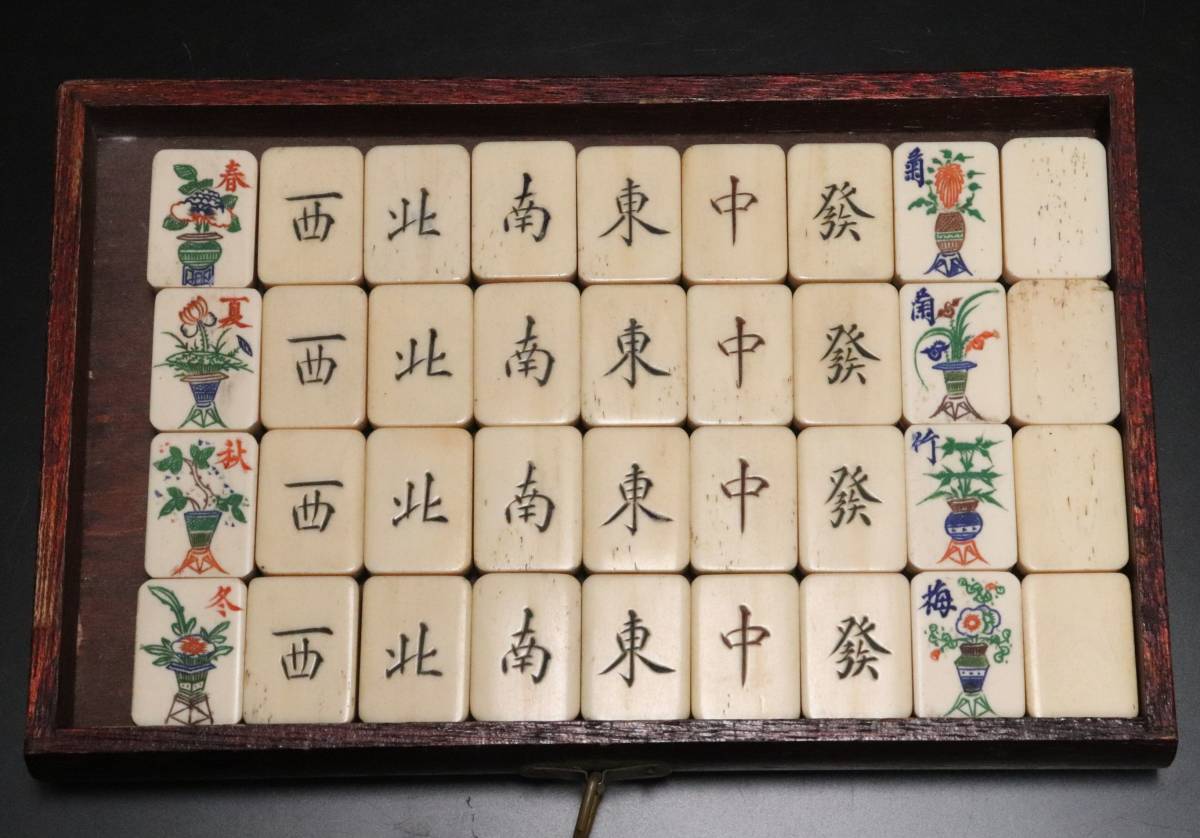 春 西 北 南 東 中 發 菊
夏 西 北 南 東 中 發 蘭
秋 西 北 南 東 中 發 竹
冬 西 北 南 東 中 發 梅